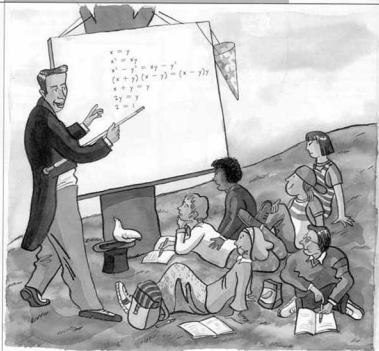 x = y
x² = xy
x² - y² = xy - y²
(x + y) (x - y) = (x - y)y
x + y = y
2y = y
2 = 1